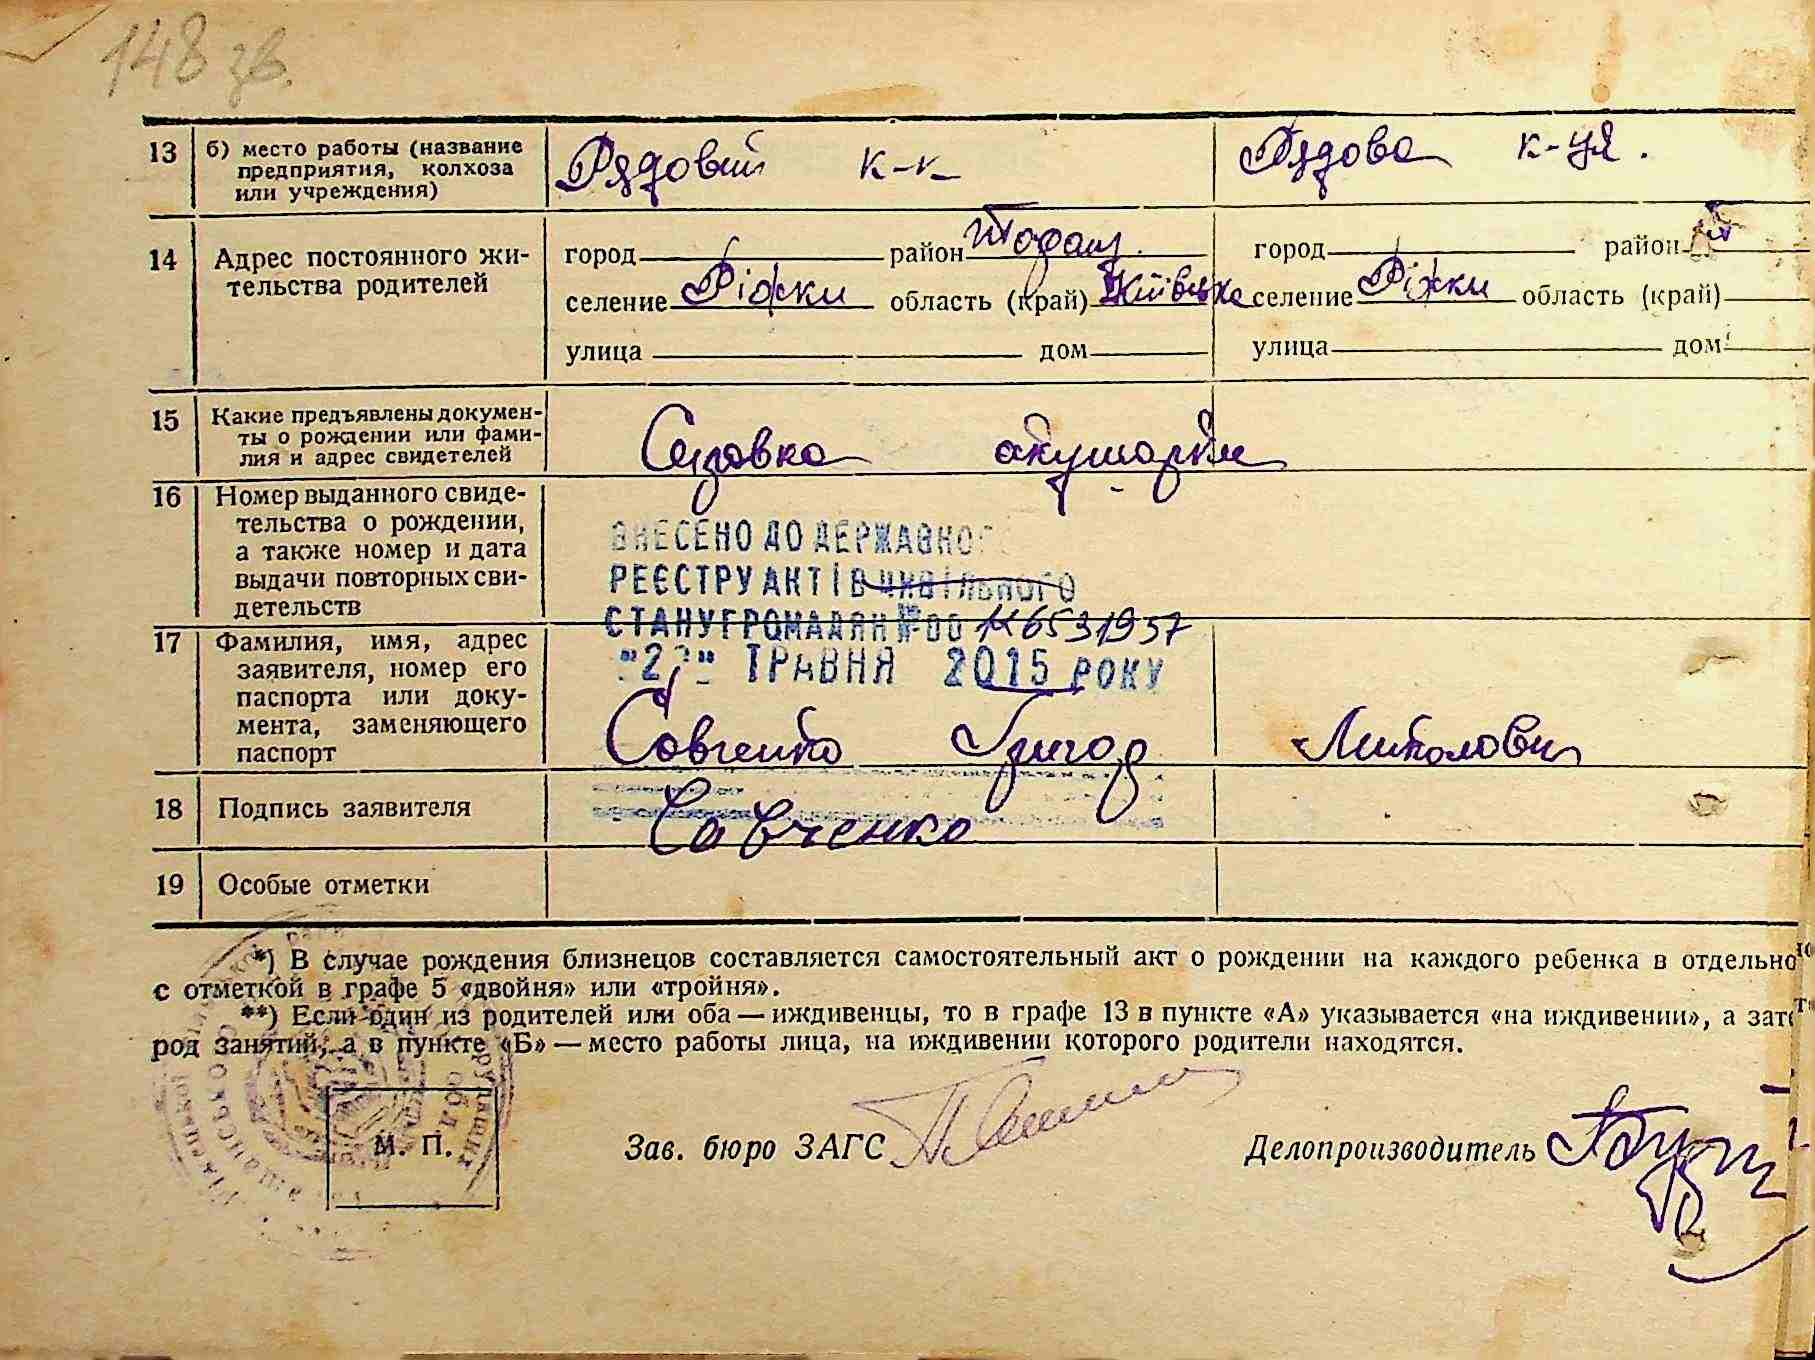 148 зв.
13 б) место работы (название Рядовий к-к Рядова к-ця.
предприятия, колхоза
или учреждения)
14 Адрес постоянного жи- город район город район
тельства родителей селение Ріжки область (край) Київська селение Ріжки область (край)
улица дом улица дом
15 Какие предъявлены докумен-
ты о рождении или фами-
лия и адрес свидетелей
16 Номер выданного свиде-
тельства о рождении,
а также номер и дата
выдачи повторных сви-
детельств
ВНЕСЕНО ДО ДЕРЖАВНОГ
РЕЄСТРУ АКТІВ ЦИВІЛЬНОГО
СТАНУ ГРОМАДЯН № 00
ТРАВНЯ 2015 РОКУ
17 Фамилия, имя, адрес
заявителя, номер его
паспорта или доку-
мента, заменяющего
паспорт
Савченко Григор Миколови
18 Подпись заявителя Савченко
19 Особые отметки
*) В случае рождения близнецов составляется самостоятельный акт о рождении на каждого ребенка в отдельно
с отметкой в графе 5 «двойня» или «тройня».
**) Если один из родителей или оба — иждивенцы, то в графе 13 в пункте «А» указывается «на иждивении», а зат
род занятий, а в пункте «Б» — место работы лица, на иждивении которого родители находятся.
М. П. Зав. бюро ЗАГС Делопроизводитель